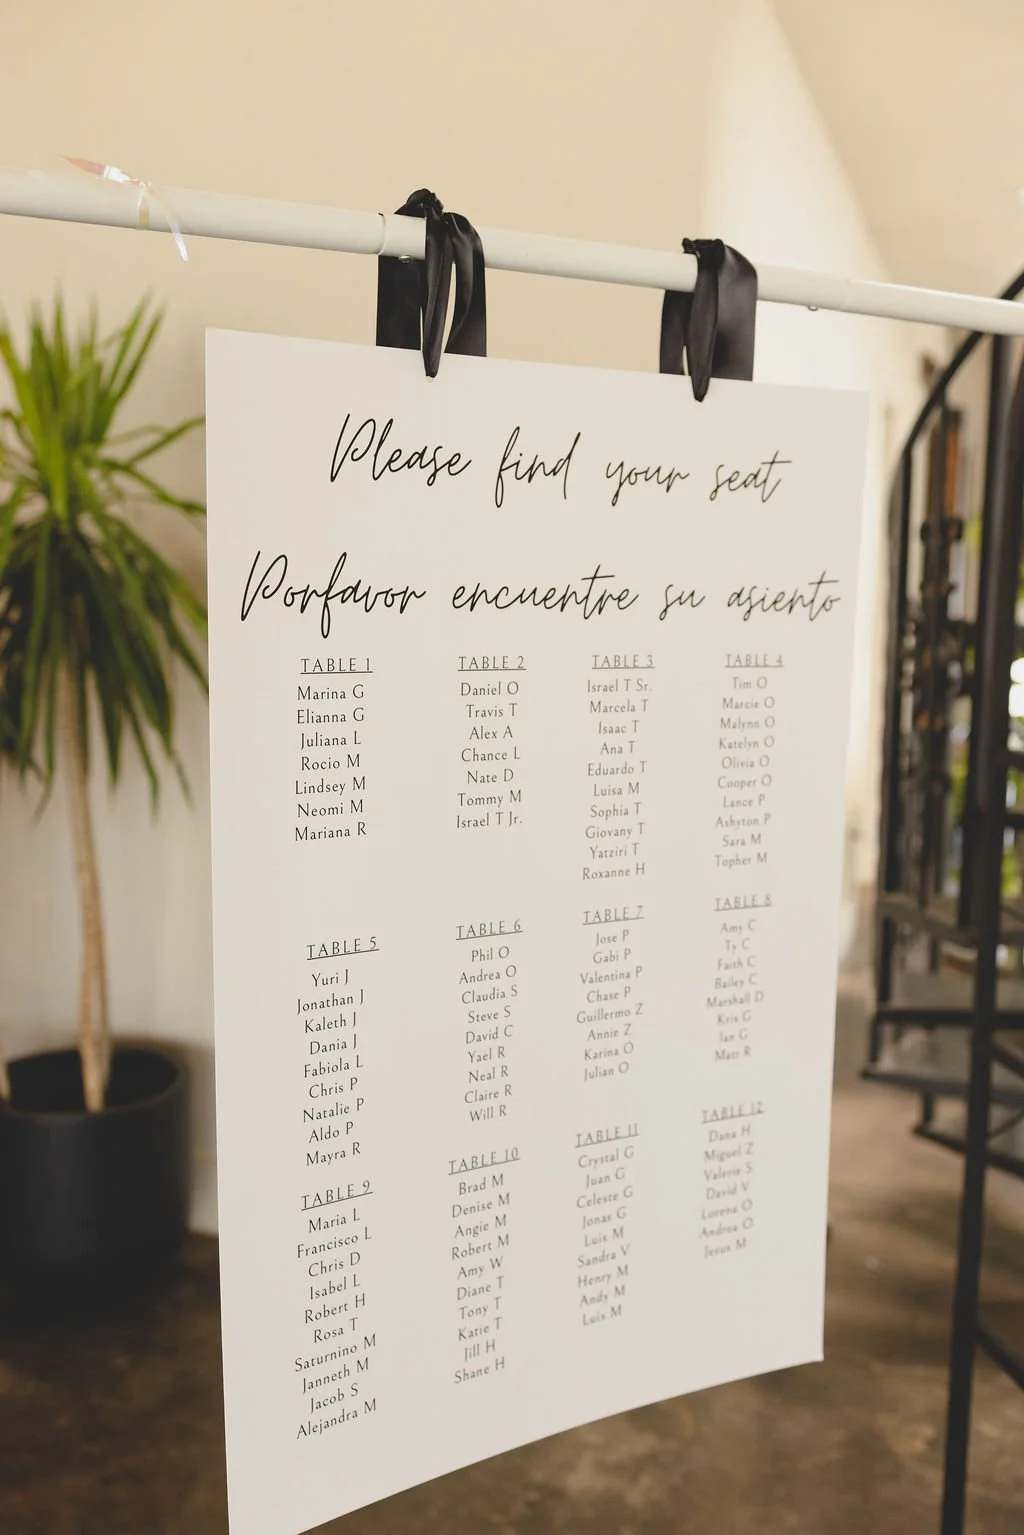 Please find your seat
Porfavor encuentre su asiento
TABLE 1
Marina G
Elianna G
Juliana L
Rocio M
Lindsey M
Neomi M
Mariana R
TABLE 2
Daniel O
Travis T
Alex A
Chance L
Nate D
Tommy M
Israel T Jr.
TABLE 3
Israel T Sr.
Marcela T
Isaac T
Ana T
Eduardo T
Luisa M
Sophia T
Giovany T
Yatziri T
Roxanne H
TABLE 4
Tim O
Marcie O
Malynn O
Katelyn O
Olivia O
Cooper O
Lance P
Ashyton P
Sara M
Topher M
TABLE 5
Yuri J
Jonathan J
Kaleth J
Dania J
Fabiola L
Chris P
Natalie P
Aldo P
Mayra R
TABLE 6
Phil O
Andrea O
Claudia S
Steve S
David C
Yael R
Neal R
Claire R
Will R
TABLE 7
Jose P
Gabi P
Valentina P
Chase P
Guillermo Z
Annie Z
Karina O
Julian O
TABLE 8
Amy C
Ty C
Faith C
Bailey C
Marshall D
Kris G
Ian G
Matt R
TABLE 9
Maria L
Francisco L
Chris D
Isabel L
Robert H
Rosa T
Saturnino M
Janneth M
Jacob S
Alejandra M
TABLE 10
Brad M
Denise M
Angie M
Robert M
Amy W
Diane T
Tony T
Katie T
Jill H
Shane H
TABLE 11
Crystal G
Juan G
Celeste G
Jonas G
Luis M
Sandra V
Henry M
Andy M
Luis M
TABLE 12
Dana H
Miguel Z
Valerie S
David V
Lorena O
Andrea O
Jesus M